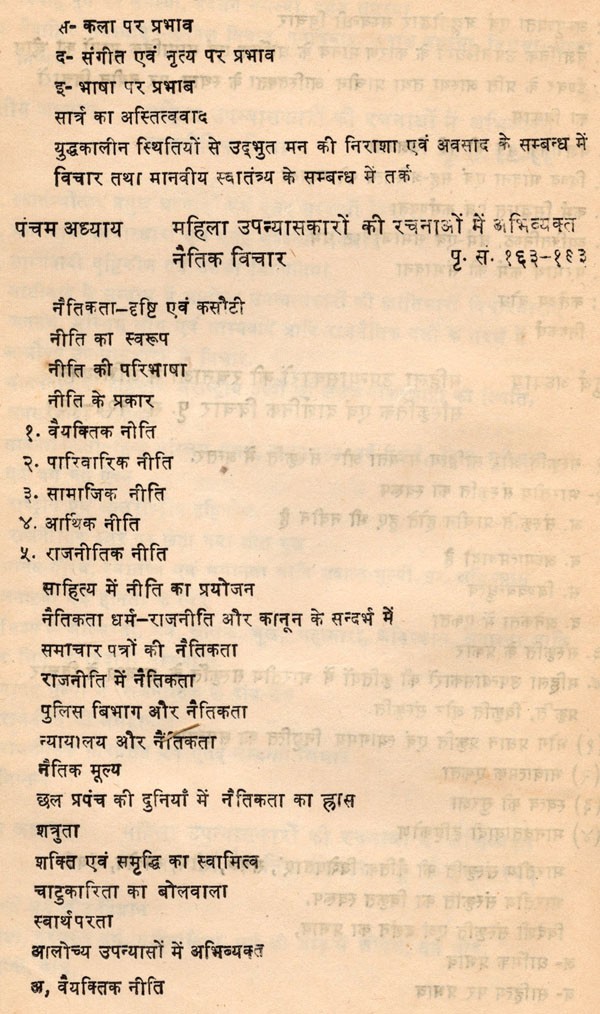 स- कला पर प्रभाव
द- संगीत एवं नृत्य पर प्रभाव
इ- भाषा पर प्रभाव
सार्त्र का अस्तित्ववाद
युद्धकालीन स्थितियों से उद्भुत मन की निराशा एवं अवसाद के सम्बन्ध में
विचार तथा मानवीय स्वातंत्र्य के सम्बन्ध में तर्क
पंचम अध्याय महिला उपन्यासकारों की रचनाओं में अभिव्यक्त
नैतिक विचार पृ. स. १६३-१९३
नैतिकता-दृष्टि एवं कसौटी
नीति का स्वरूप
नीति की परिभाषा
नीति के प्रकार
१. वैयक्तिक नीति
२. पारिवारिक नीति
३. सामाजिक नीति
४. आर्थिक नीति
५. राजनीतिक नीति
साहित्य में नीति का प्रयोजन
नैतिकता धर्म-राजनीति और कानून के सन्दर्भ में
समाचार पत्रों की नैतिकता
राजनीति में नैतिकता
पुलिस बिभाग और नैतिकता
न्यायालय और नैतिकता
नैतिक मूल्य
छल प्रपंच की दुनियाँ में नैतिकता का ह्रास
शत्रुता
शक्ति एवं समृद्धि का स्वामित्व
चाटुकारिता का बोलवाला
स्वार्थपरता
आलोच्य उपन्यासों में अभिव्यक्त
अ, वैयक्तिक नीति